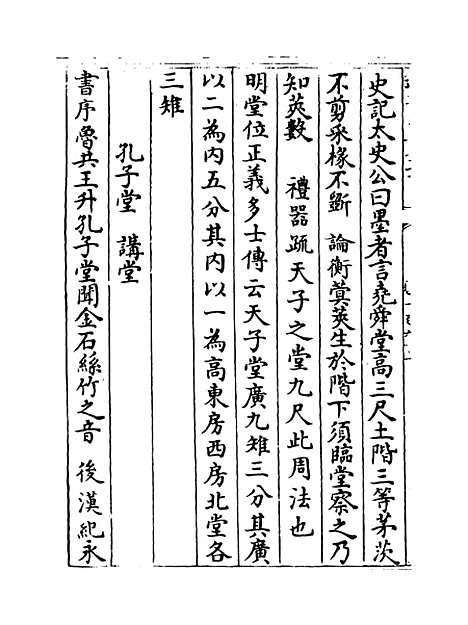 史記太史公曰墨者言堯舜堂高三尺土階三等茅茨
不剪采椽不斵　論衡蓂莢生於階下須臨堂察之乃
知莢數　禮器疏天子之堂九尺此周法也
明堂位正義多士傳云天子堂廣九雉三分其廣
以二為内五分其内以一為高東房西房北堂各
三雉
孔子堂　講堂
書序魯共王升孔子堂聞金石絲竹之音　後漢紀永